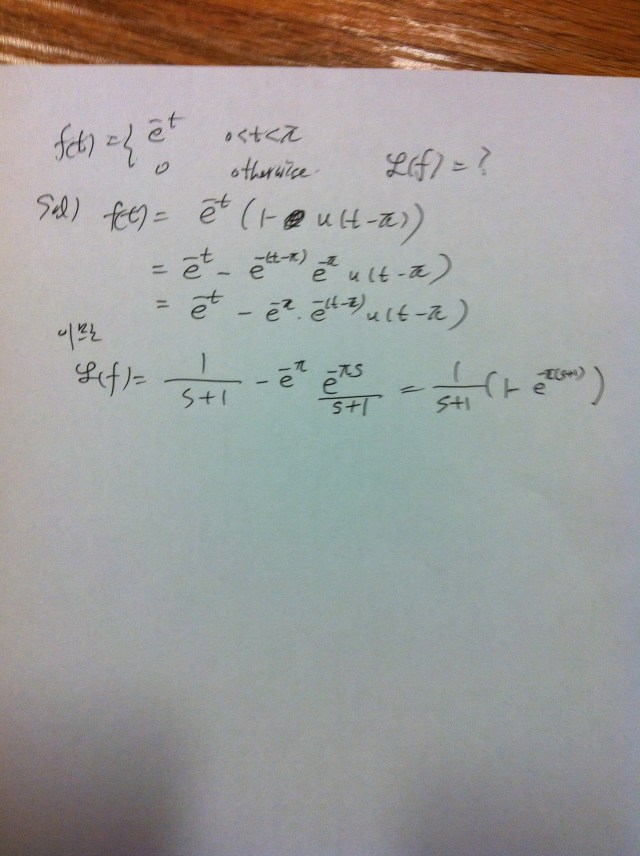 f(t) = { e^-t 0<t<π
0 otherwise. ℒ(f) = ?
Sol) f(t) = e^-t (1 - u(t-π))
= e^-t - e^-(t-π) e^-π u(t-π)
= e^-t - e^-π · e^-(t-π) u(t-π)
이므로
ℒ(f) = 1/(s+1) - e^-π e^-πs/(s+1) = 1/(s+1) (1 - e^-π(s+1))